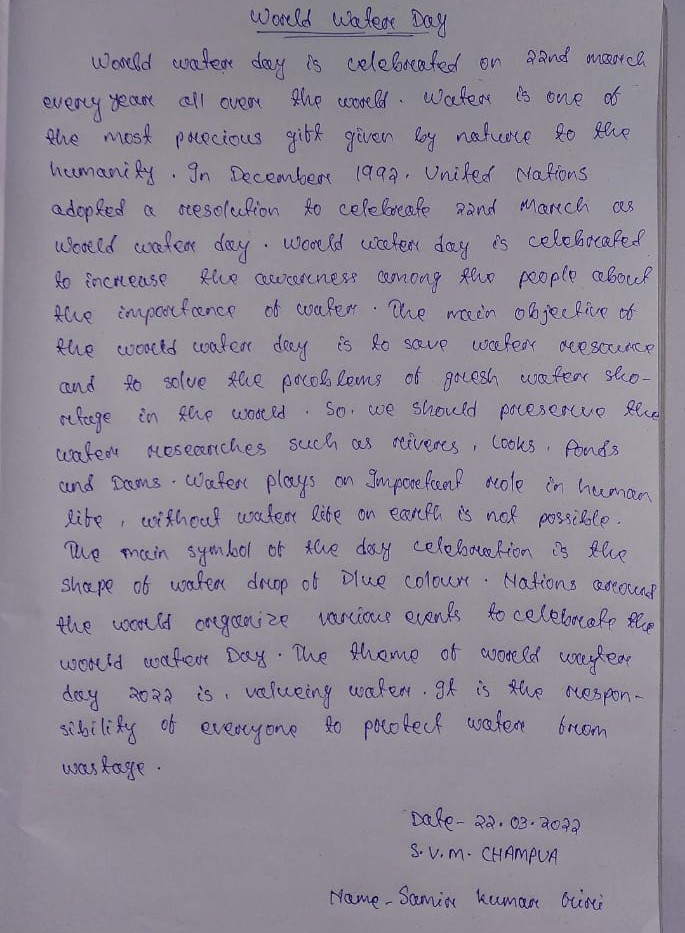 World Water Day
World water day is celebrated on 22nd march
every year all over the world. Water is one of
the most precious gift given by nature to the
humanity. In December 1992, United Nations
adopted a resolution to celebrate 22nd March as
World water day. World water day is celebrated
to increase the awarness among the people about
the importance of water. The main objective of
the world water day is to save water resource
and to solve the problems of gresh water sho-
rtage in the world. So, we should preserve the
water researches such as rivers, Looks, Ponds
and Dams. Water plays an Important role in human
life, without water life on earth is not possible.
The main symbol of the day celebration is the
shape of water drop of Blue colour. Nations around
the world organize various events to celebrate the
world water Day. The theme of world wayter
day 2022 is, valueing water. It is the respon-
sibility of everyone to protect water from
wastage.
Date- 22.03.2022
S.V.M. CHAMPUA
Name- Samir kumar